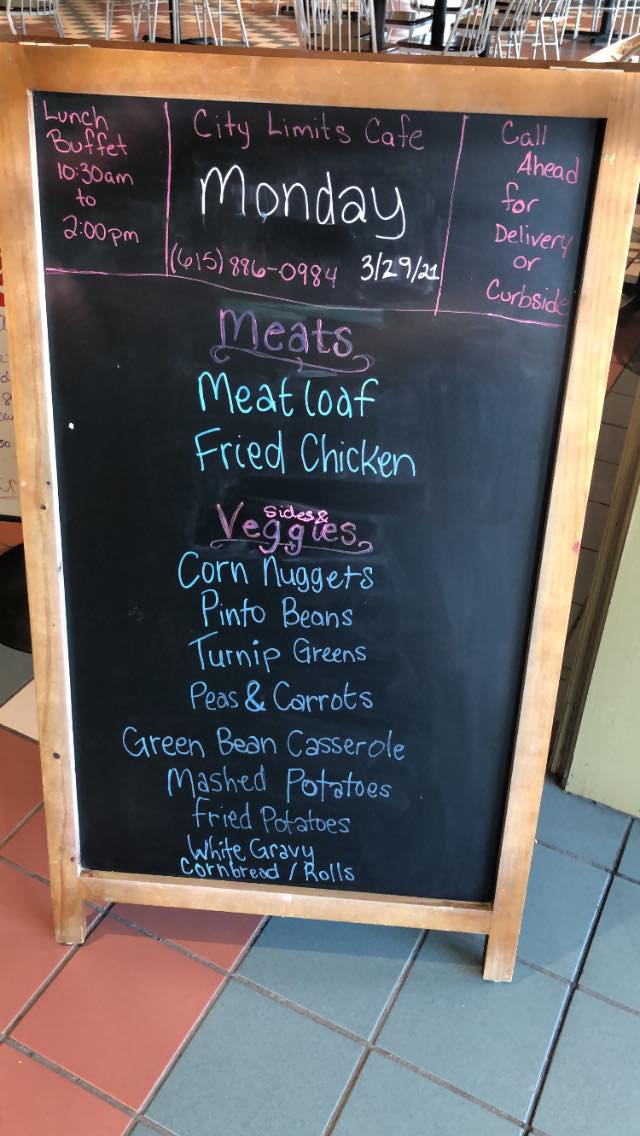 Lunch
Buffet
10:30am
to
2:00pm
City Limits Cafe
Monday
(615) 886-0984 3/29/21
Call
Ahead
for
Delivery
or
Curbside
Meats
Meatloaf
Fried Chicken
Sides &
Veggies
Corn Nuggets
Pinto Beans
Turnip Greens
Peas & Carrots
Green Bean Casserole
Mashed Potatoes
Fried Potatoes
White Gravy
Cornbread / Rolls